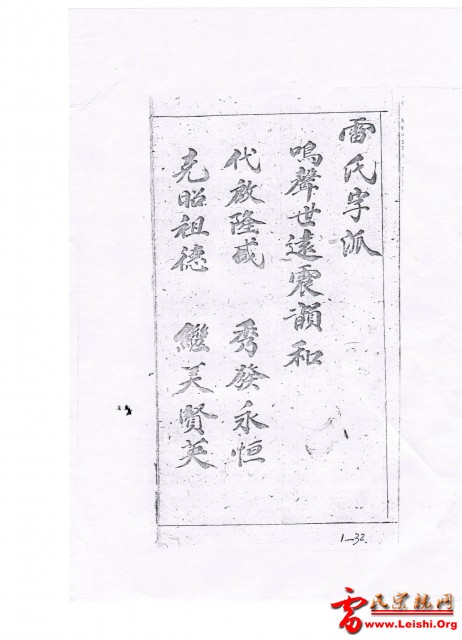 雷氏字派
鳴聲世遠震韻和
代啟隆盛 秀發永恒
克昭祖德 繼美賢英
1—32.
雷氏宗親网
www.Leishi.Org